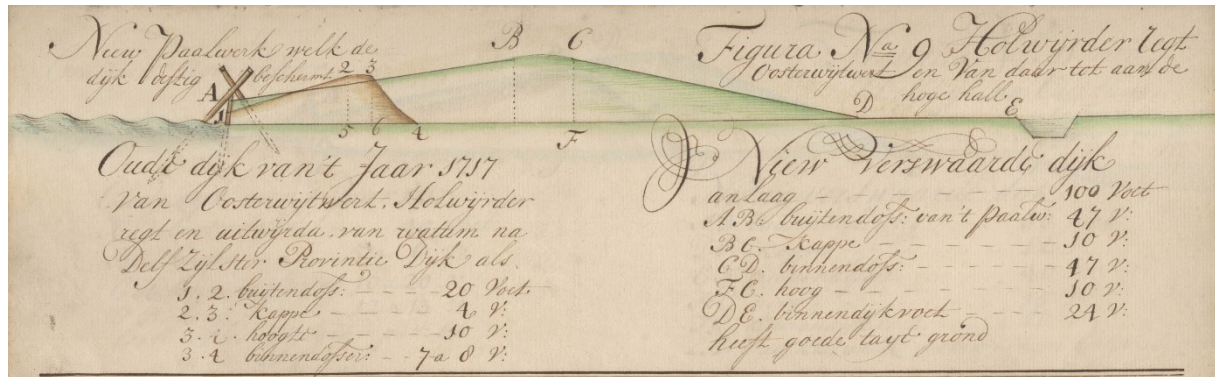 Niew Paalwerk welk de
dijk bestig beschermt
A
1
2 3
B C
5 6 4
F
D
E
Figura Na 9 Holwijrder regt
Oosterwijtwert en Van daar tot aan de
hoge hall
Oude dijk van't Jaar 1717
Van Oosterwijtwert. Holwijrder
regt en uitwijrda. van watum na
Delf Zijlster Provintie Dijk als.
1. 2. buijtendoss: - - - 20 Voet
2. 3. Kappe - - - - 4 V:
3. i. hoogte - - - - 10 V:
3. 4 binnendosser: - - 7 a 8 V:
Niew Verswaarde dijk
anlaag - - - - - - - 100 Voet
A B. buijtendoss: van't paalw: 47 V:
B C. Kappe - - - - - - 10 V:
C D. binnendoss: - - - - - 47 V:
F C. hoog - - - - - - 10 V:
D E. binnendijkvoet - - - - 24 V:
heeft goede taije grond